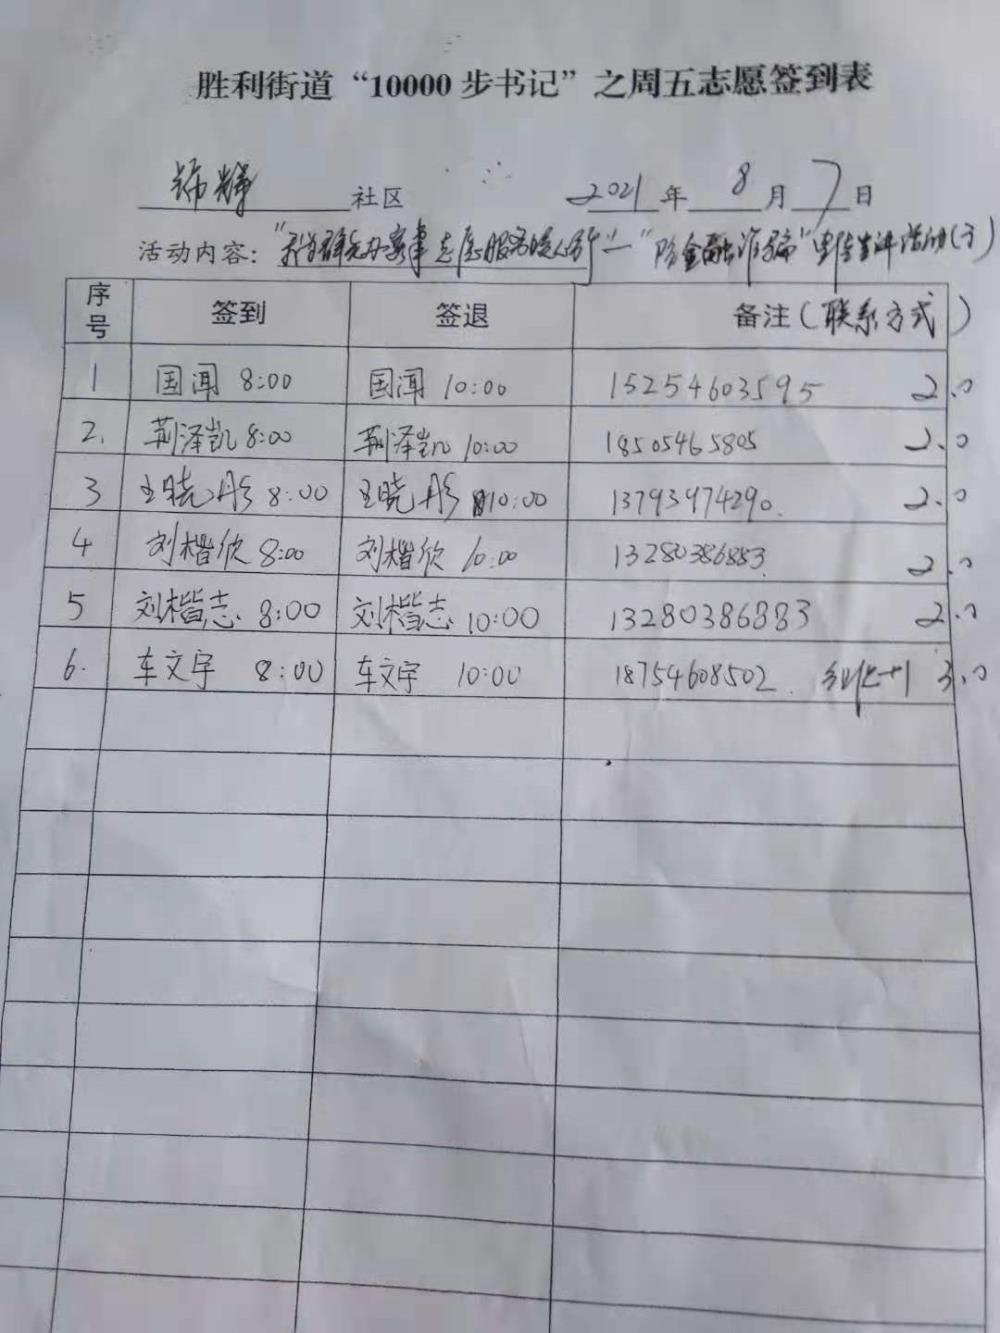 胜利街道“10000步书记”之周五志愿签到表
锦辉 社区 2021 年 8 月 7 日
活动内容：“我为群众办实事 志愿服务暖人心”—“防金融诈骗”宣传宣讲活动
序号 签到 签退 备注（联系方式）
1 国闻 8:00 国闻 10:00 15254603595 2.0
2. 荆泽凯 8:00 荆泽凯 10:00 18505465805 2.0
3 王晓彤 8:00 王晓彤 10:00 13793974290. 2.0
4 刘楷欣 8:00 刘楷欣 10:00 13280386883 2.0
5 刘楷志 8:00 刘楷志 10:00 13280386883 2.0
6. 车文宇 8:00 车文宇 10:00 18754608502. +1 3.0